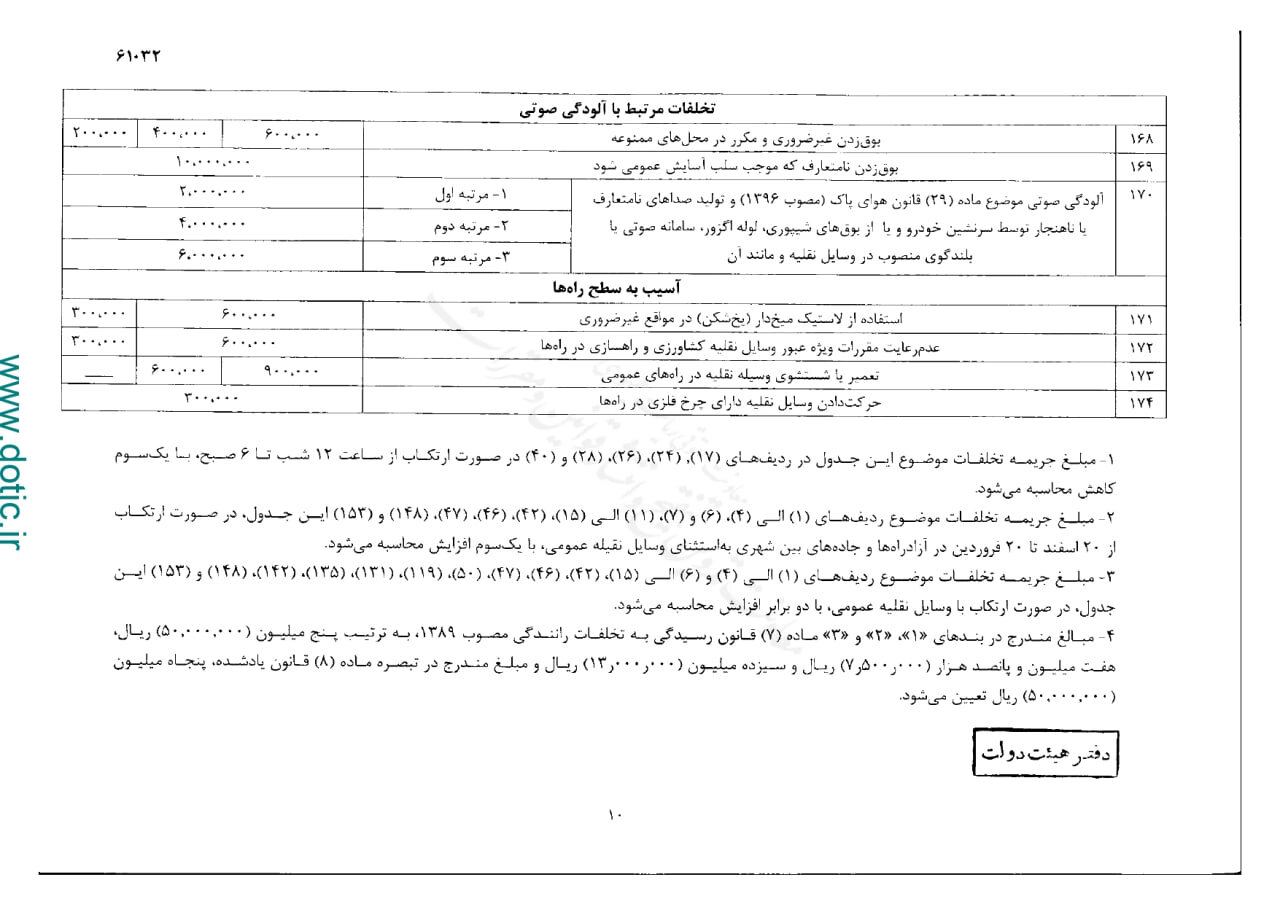 ۶۱۰۳۲
تخلفات مرتبط با آلودگی صوتی
۱۶۸ بوق‌زدن غیرضروری و مکرر در محل‌های ممنوعه ۶۰۰,۰۰۰ ۴۰۰,۰۰۰ ۲۰۰,۰۰۰
۱۶۹ بوق‌زدن نامتعارف که موجب سلب آسایش عمومی شود ۱۰,۰۰۰,۰۰۰
۱۷۰ آلودگی صوتی موضوع ماده (۲۹) قانون هوای پاک (مصوب ۱۳۹۶) و تولید صداهای نامتعارف ۱- مرتبه اول ۲,۰۰۰,۰۰۰
یا ناهنجار توسط سرنشین خودرو و یا از بوق‌های شیپوری، لوله اگزور، سامانه صوتی یا ۲- مرتبه دوم ۴,۰۰۰,۰۰۰
بلندگوی منصوب در وسایل نقلیه و مانند آن ۳- مرتبه سوم ۶,۰۰۰,۰۰۰
آسیب به سطح راه‌ها
۱۷۱ استفاده از لاستیک میخ‌دار (یخ‌شکن) در مواقع غیرضروری ۶۰۰,۰۰۰ ۳۰۰,۰۰۰
۱۷۲ عدم‌رعایت مقررات ویژه عبور وسایل نقلیه کشاورزی و راهسازی در راه‌ها ۶۰۰,۰۰۰ ۳۰۰,۰۰۰
۱۷۳ تعمیر یا شستشوی وسیله نقلیه در راه‌های عمومی ۹۰۰,۰۰۰ ۶۰۰,۰۰۰ __
۱۷۴ حرکت‌دادن وسایل نقلیه دارای چرخ فلزی در راه‌ها ۳۰۰,۰۰۰
۱- مبلغ جریمه تخلفات موضوع این جدول در ردیف‌های (۱۷)، (۲۴)، (۲۶)، (۲۸) و (۴۰) در صورت ارتکاب از ساعت ۱۲ شب تا ۶ صبح، با یک‌سوم
کاهش محاسبه می‌شود.
۲- مبلغ جریمه تخلفات موضوع ردیف‌های (۱) الی (۴)، (۶) و (۷)، (۱۱) الی (۱۵)، (۴۲)، (۴۶)، (۴۷)، (۱۴۸) و (۱۵۳) این جدول، در صورت ارتکاب
از ۲۰ اسفند تا ۲۰ فروردین در آزادراه‌ها و جاده‌های بین شهری به‌استثنای وسایل نقیله عمومی، با یک‌سوم افزایش محاسبه می‌شود.
۳- مبلغ جریمه تخلفات موضوع ردیف‌های (۱) الی (۴) و (۶) الی (۱۵)، (۴۲)، (۴۶)، (۴۷)، (۵۰)، (۱۱۹)، (۱۳۱)، (۱۳۵)، (۱۴۲)، (۱۴۸) و (۱۵۳) این
جدول، در صورت ارتکاب با وسایل نقلیه عمومی، با دو برابر افزایش محاسبه می‌شود.
۴- مبالغ مندرج در بندهای «۱»، «۲» و «۳» ماده (۷) قانون رسیدگی به تخلفات رانندگی مصوب ۱۳۸۹، به ترتیب پنج میلیون (۵۰,۰۰۰,۰۰۰) ریال،
هفت میلیون و پانصد هزار (۷ر۵۰۰ر۰۰۰) ریال و سیزده میلیون (۱۳ر۰۰۰ر۰۰۰) ریال و مبلغ مندرج در تبصره ماده (۸) قانون یادشده، پنجاه میلیون
(۵۰,۰۰۰,۰۰۰) ریال تعیین می‌شود.
دفتر هیئت دولت
۱۰
www.dotic.ir